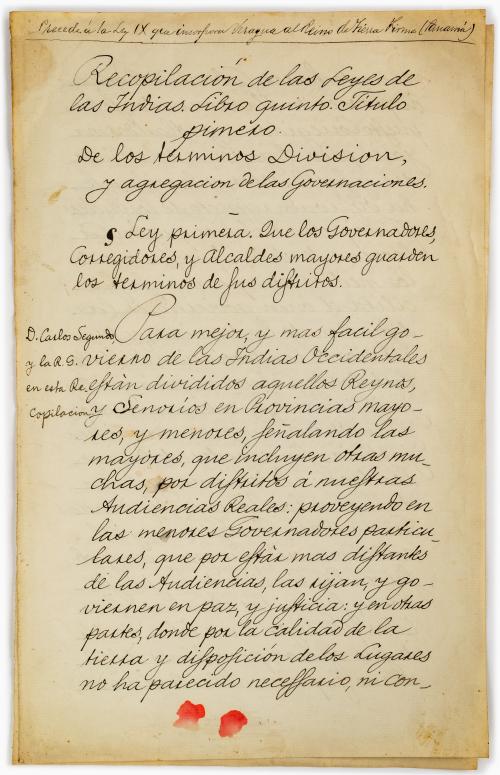 Precede á la Ley IX que incorpora Veragua al Reino de Tierra Firme (Panamá)
Recopilación de las Leyes de
las Indias. Libro quinto. Título
pimero.
De los terminos Division,
y agregacion de las Governaciones.
Ley primera. Que los Governadores,
Corregidores, y Alcaldes mayores guarden
los terminos de sus distritos.
D. Carlos Segundo
y la R. G.
en esta Re
Copilacion
Para mejor, y mas facil go-
vierno de las Indias Occidentales
están divididos aquellos Reynos,
y Senoríos en Provincias mayo-
res, y menores, señalando las
mayores, que incluyen otras mu-
chas, por distritos á nuestras
Audiencias Reales: proveyendo en
las menores Governadores particu-
lares, que por estàr mas distantes
de las Audiencias, las rijan, y go-
viernen en paz, y justicia: y en otras
partes, donde por la calidad de la
tierra y disposición de los Lugares
no ha parecido necessario, ni con-